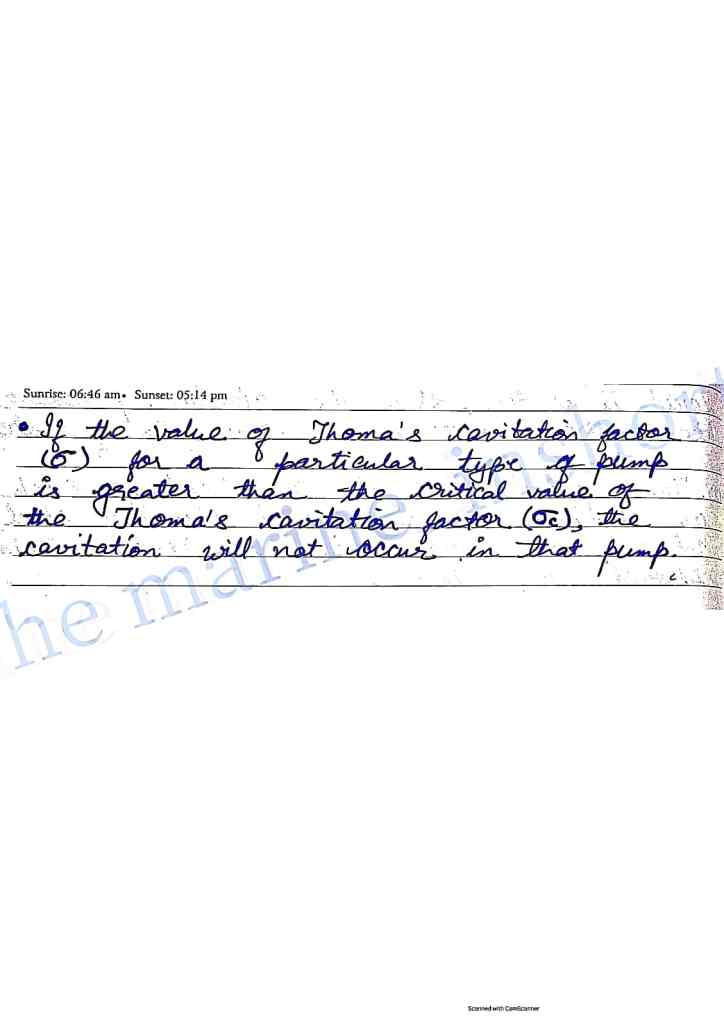 Sunrise: 06:46 am• Sunset: 05:14 pm
• If the value of Thoma's cavitation factor
(σ) for a particular type of pump
is greater than the critical value of
the Thoma's cavitation factor (σc), the
cavitation will not occur in that pump.
he marine insho
Scanned with CamScanner